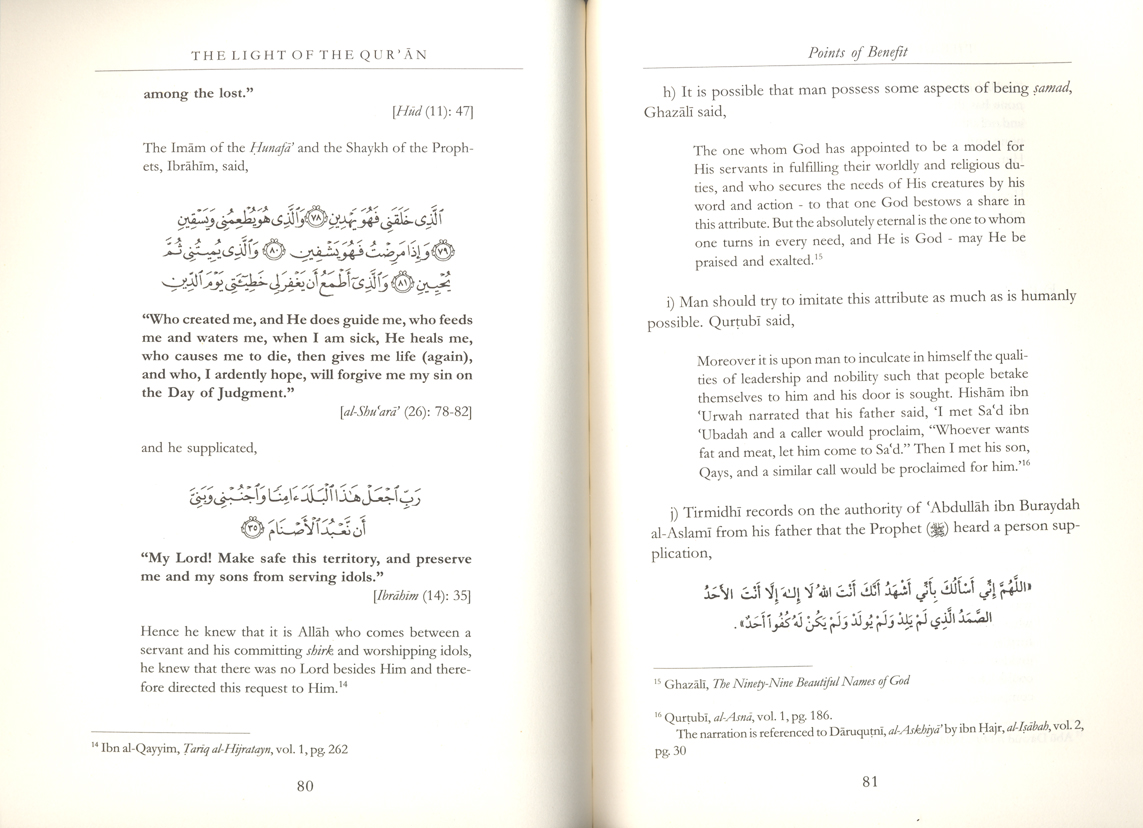 THE LIGHT OF THE QUR'ĀN
among the lost."
[Hūd (11): 47]
The Imām of the Ḥunafā' and the Shaykh of the Proph-
ets, Ibrāhīm, said,
ٱلَّذِى خَلَقَنِى فَهُوَ يَهْدِينِ ﴿٧٨﴾ وَٱلَّذِى هُوَ يُطْعِمُنِى وَيَسْقِينِ
﴿٧٩﴾ وَإِذَا مَرِضْتُ فَهُوَ يَشْفِينِ ﴿٨٠﴾ وَٱلَّذِى يُمِيتُنِى ثُمَّ
يُحْيِينِ ﴿٨١﴾ وَٱلَّذِىٓ أَطْمَعُ أَن يَغْفِرَ لِى خَطِيٓـَٔتِى يَوْمَ ٱلدِّينِ
"Who created me, and He does guide me, who feeds
me and waters me, when I am sick, He heals me,
who causes me to die, then gives me life (again),
and who, I ardently hope, will forgive me my sin on
the Day of Judgment."
[al-Shu'arā' (26): 78-82]
and he supplicated,
رَبِّ ٱجْعَلْ هَٰذَا ٱلْبَلَدَ ءَامِنًا وَٱجْنُبْنِى وَبَنِىَّ
أَن نَّعْبُدَ ٱلْأَصْنَامَ ﴿٣٥﴾
"My Lord! Make safe this territory, and preserve
me and my sons from serving idols."
[Ibrāhīm (14): 35]
Hence he knew that it is Allāh who comes between a
servant and his committing shirk and worshipping idols,
he knew that there was no Lord besides Him and there-
fore directed this request to Him.14
14 Ibn al-Qayyim, Ṭarīq al-Hijratayn, vol. 1, pg. 262
80
Points of Benefit
h) It is possible that man possess some aspects of being ṣamad,
Ghazālī said,
The one whom God has appointed to be a model for
His servants in fulfilling their worldly and religious du-
ties, and who secures the needs of His creatures by his
word and action - to that one God bestows a share in
this attribute. But the absolutely eternal is the one to whom
one turns in every need, and He is God - may He be
praised and exalted.15
i) Man should try to imitate this attribute as much as is humanly
possible. Qurṭubī said,
Moreover it is upon man to inculcate in himself the quali-
ties of leadership and nobility such that people betake
themselves to him and his door is sought. Hishām ibn
'Urwah narrated that his father said, 'I met Sa'd ibn
'Ubadah and a caller would proclaim, "Whoever wants
fat and meat, let him come to Sa'd." Then I met his son,
Qays, and a similar call would be proclaimed for him.'16
j) Tirmidhī records on the authority of 'Abdullāh ibn Buraydah
al-Aslamī from his father that the Prophet (ﷺ) heard a person sup-
plication,
«اللَّهُمَّ إِنِّي أَسْأَلُكَ بِأَنِّي أَشْهَدُ أَنَّكَ أَنْتَ اللهُ لَا إِلهَ إِلَّا أَنْتَ الأَحَدُ
الصَّمَدُ الَّذِي لَمْ يَلِدْ وَلَمْ يُولَدْ وَلَمْ يَكُنْ لَهُ كُفُوًا أَحَدٌ».
15 Ghazālī, The Ninety-Nine Beautiful Names of God
16 Qurṭubī, al-Asnā, vol. 1, pg. 186.
The narration is referenced to Dāruquṭnī, al-Askhiyā' by ibn Ḥajr, al-Iṣābah, vol. 2,
pg. 30
81